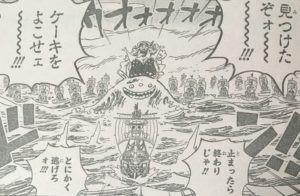 見つけた
ぞォ
〜〜!!!
オオオオオオ
ケーキを
よこせェ
〜〜!!!
止まったら
終わり
じゃ!!
とにかく
逃げろ
ォ!!!